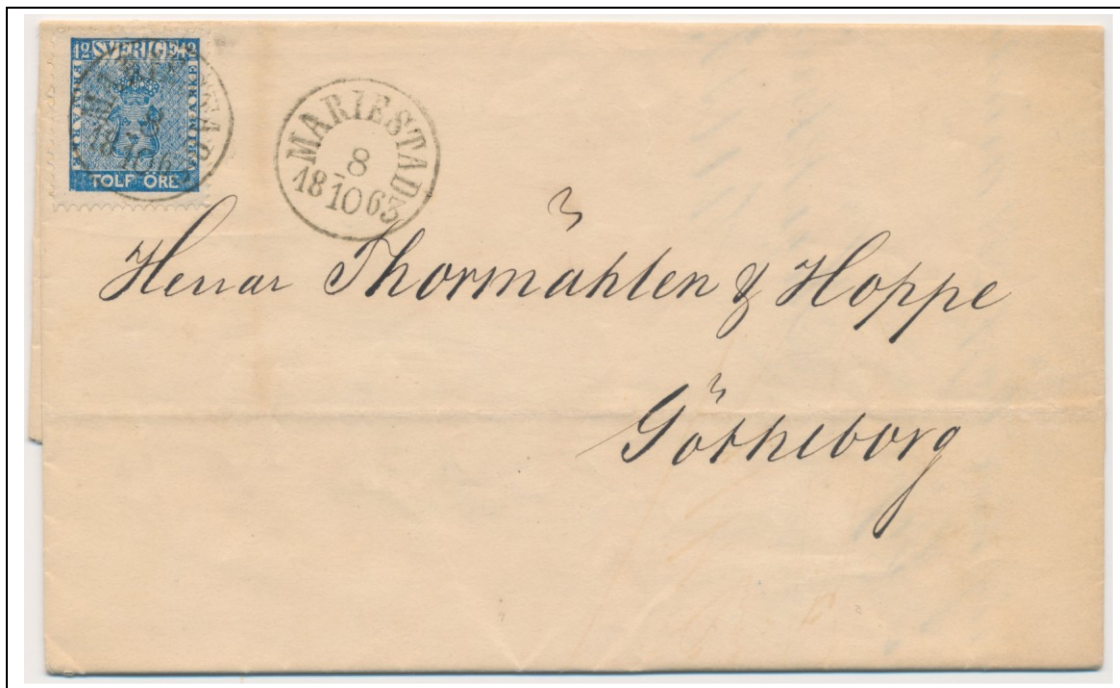 12 SVERIGE 12
FRIMÄRKE
TOLF ÖRE
MARIESTAD
8
18 10 63
Herrar Thormählen & Hoppe
Götheborg